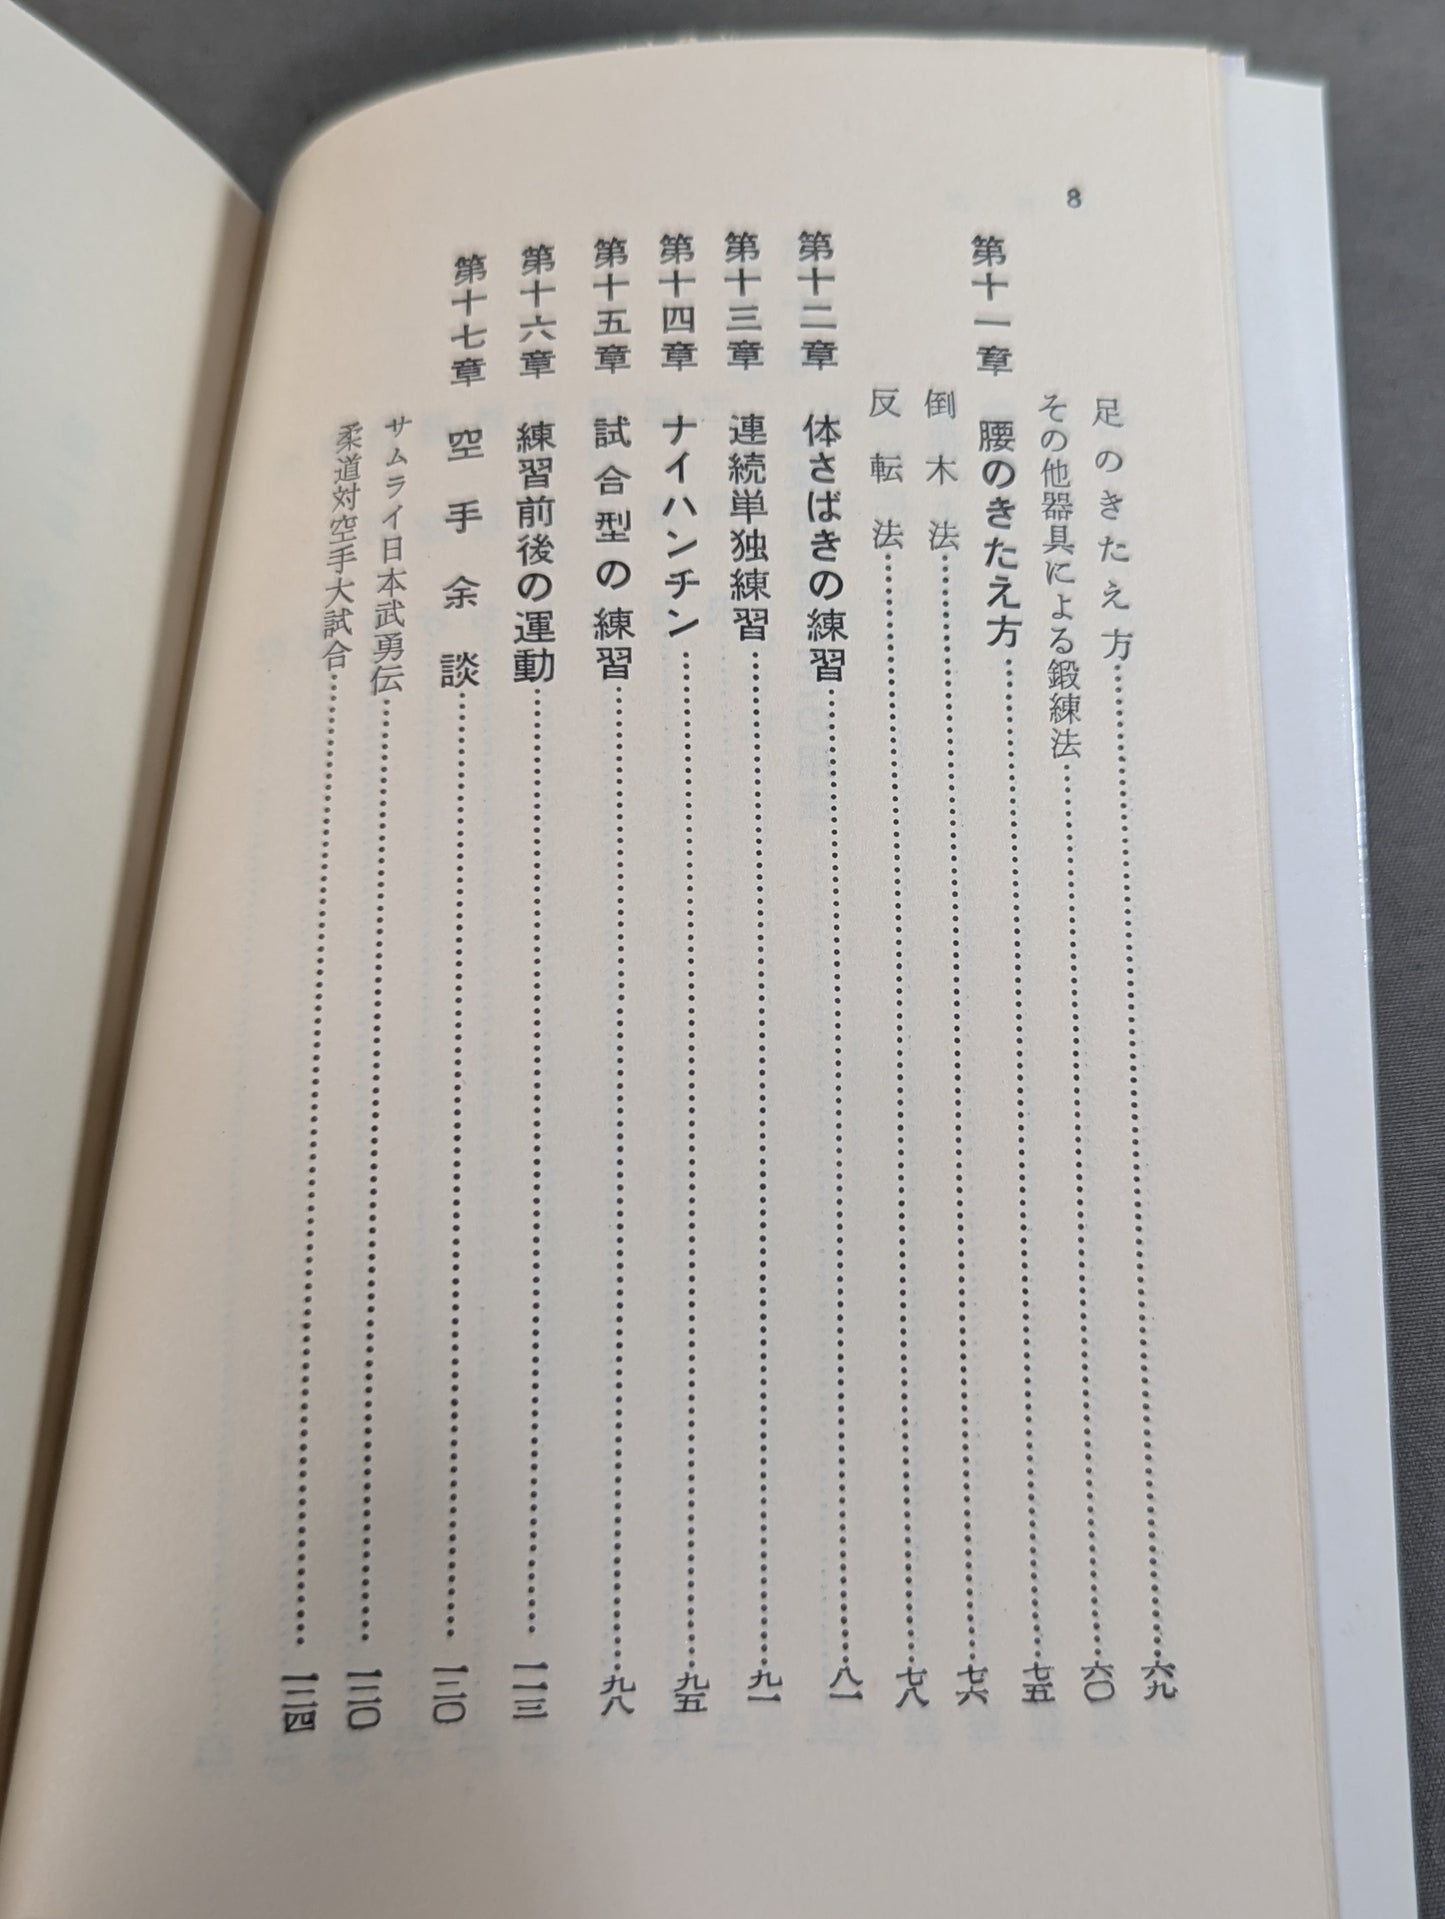 8
足のきたえ方…六九
その他器具による鍛練法…六〇
第十一章　腰のきたえ方…七五
倒木法…七六
反転法…七八
第十二章　体さばきの練習…八一
第十三章　連続単独練習…九一
第十四章　ナイハンチン…九五
第十五章　試合型の練習…九八
第十六章　練習前後の運動…一一三
第十七章　空手余談…一二〇
サムライ日本武勇伝…一二〇
柔道対空手大試合…一二四